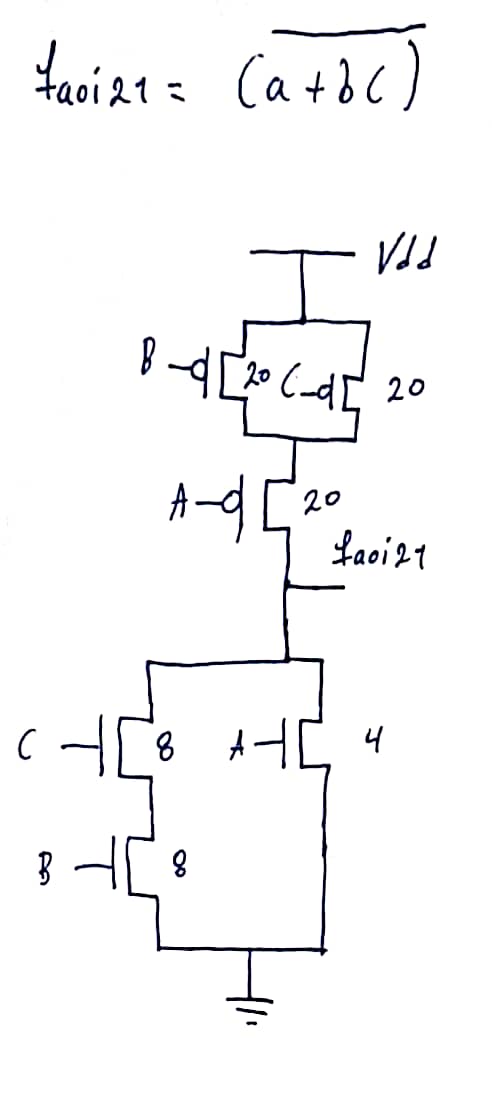 faoi21 = (a+bc)
Vdd
B 20 C 20
A 20
faoi21
C 8 A 4
B 8